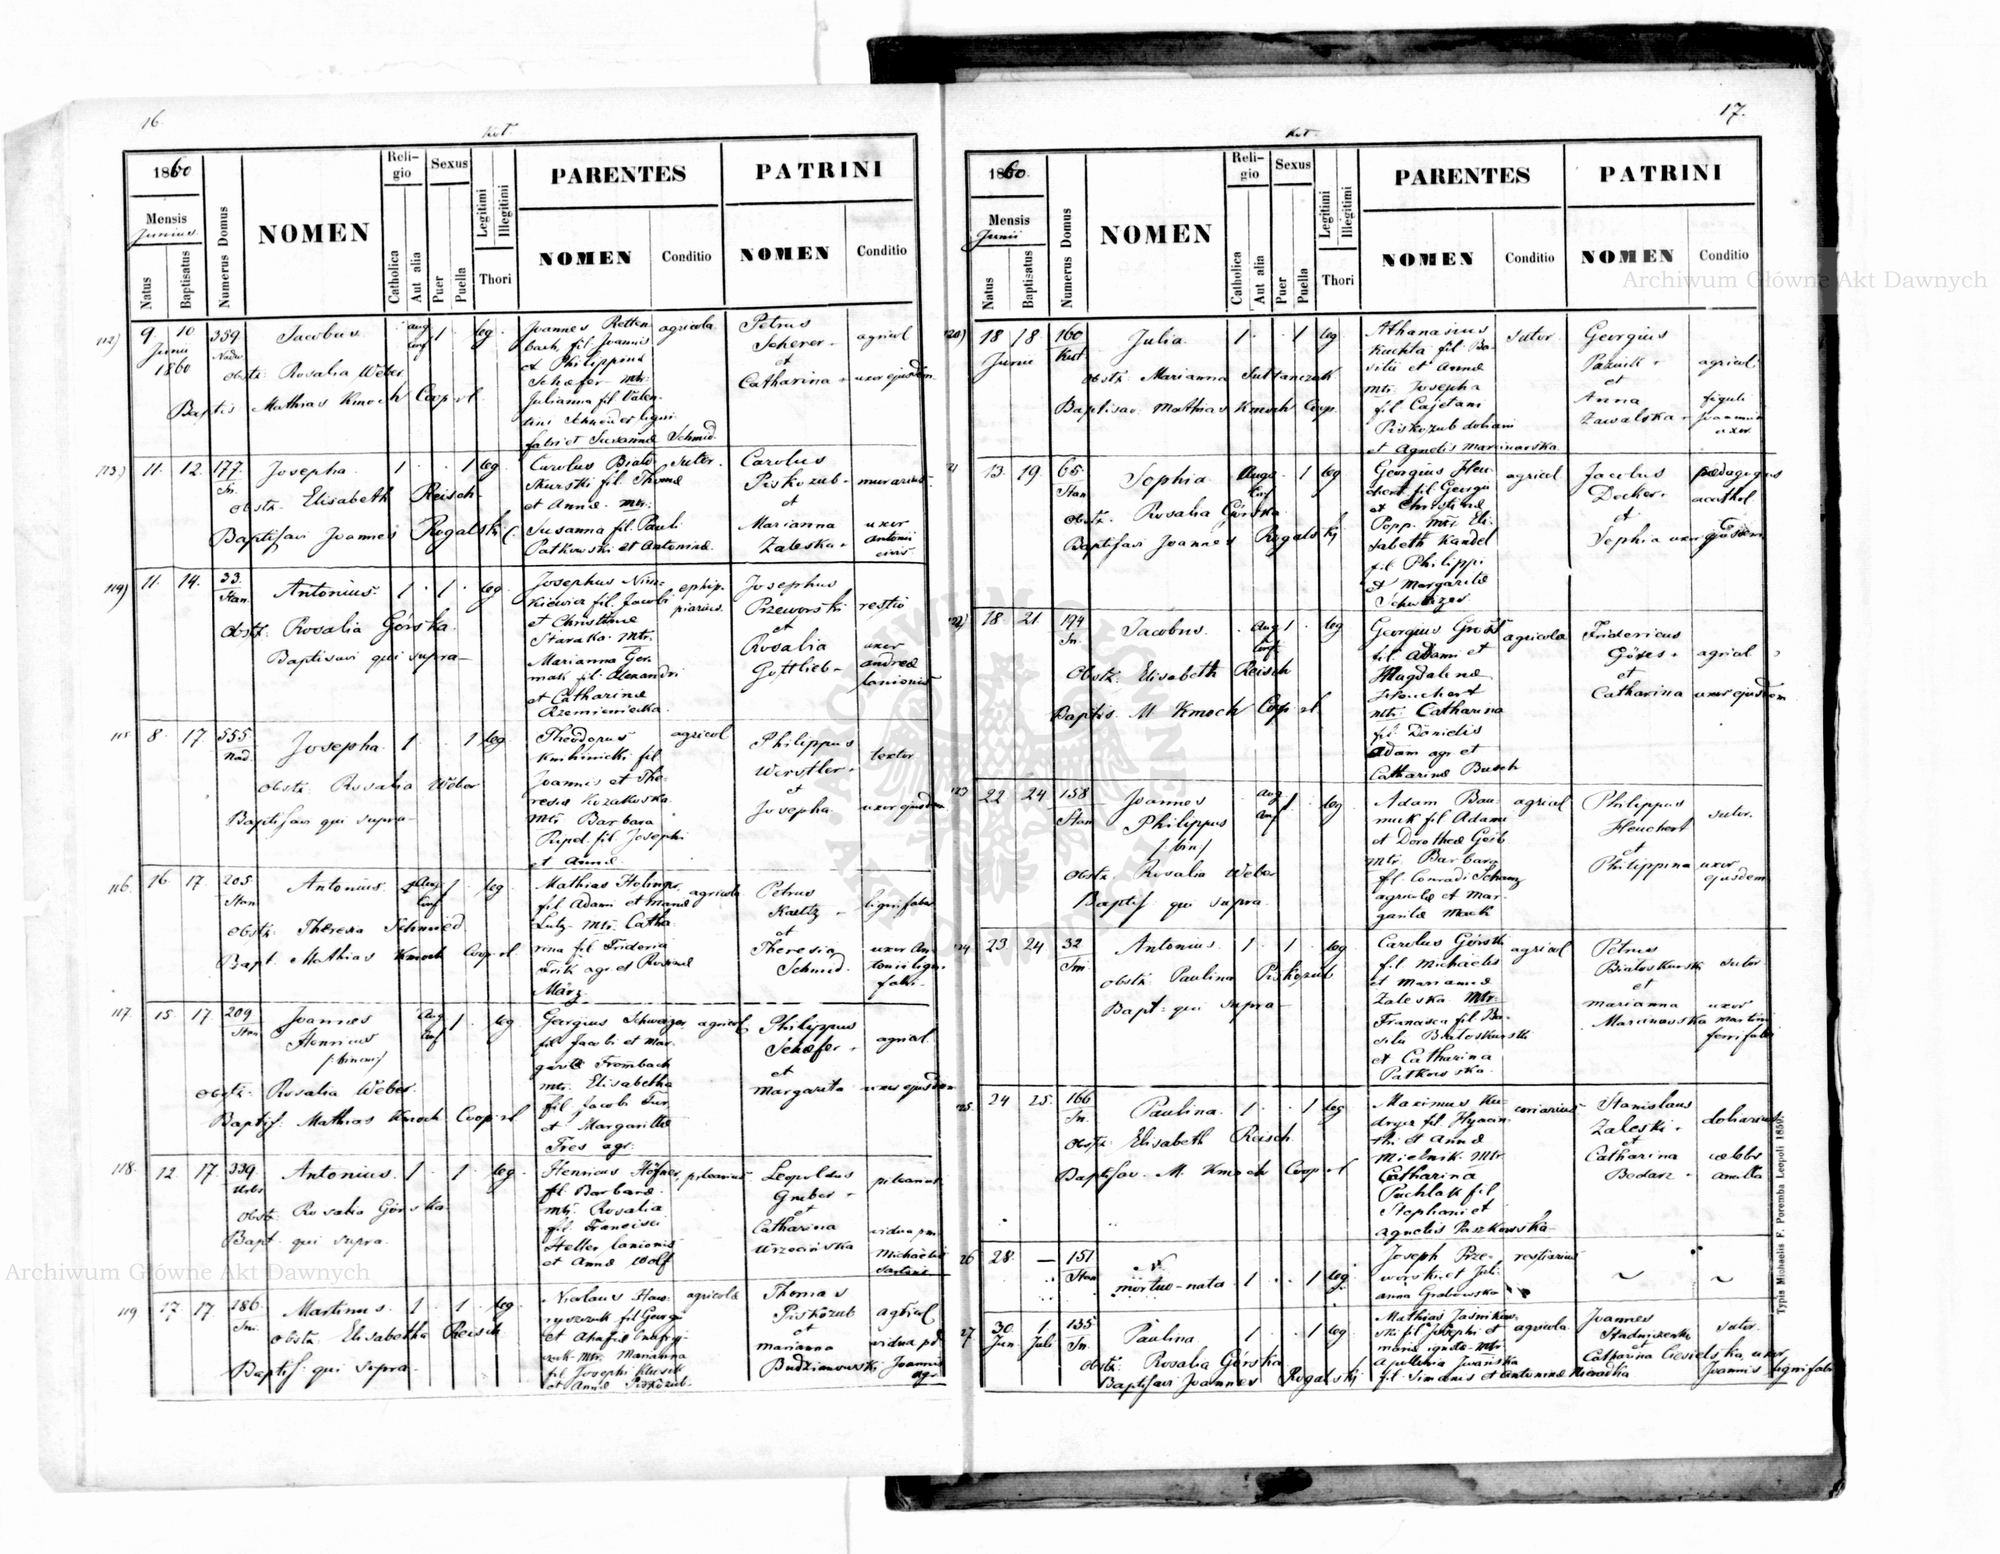 16.
Kut.
1860
Mensis
Junius
Natus
Baptisatus
Numerus Domus
NOMEN
Reli-
gio
Catholica
Aut alia
Sexus
Puer
Puella
Legitimi
Illegitimi
Thori
PARENTES
NOMEN
Conditio
PATRINI
NOMEN
Conditio
112) 9. 10 359 Jacobus aug. conf 1 leg
Junii
1860
Obstz: Rosalia Weber
Baptis Mathias Kmoch Coop
Joannes Rotten-
bach, fil. Joannis
et Philippina
Schæfer mtr:
Julianna fil Valen-
tini Schneider ligni
fabri et Susannæ Schmid
agricola
Petrus
Scherer
et
Catharina
agricol
uxor ejusdem
113.) 11. 12. 177 Josepha 1 1 leg
Sn.
obstz. Elisabeth Reisch
Baptisavi Joannes Rogalski C.
Carolus Biało-
skurski fil. Thomæ
et Annæ mtr.
Susanna fil. Pauli
Patkowski et Antoninæ
Sutor.
Carolus
Piskozub
et
Marianna
Zaleska
murarius
uxor
Antonii
civis
114) 11. 14. 33. Antonius 1 1 leg
Stan.
Obstz: Rosalia Górska
Baptisavi qui supra
Josephus Nim-
kiewicz fil. Jacobi
et Christinæ
Staraka mtr.
Marianna Ger-
mak fil. Alexandri
et Catharinæ
Rzemieniecka
ephip-
piarius
Josephus
Przeworski
et
Rosalia
Gottlieb
restio
uxor
Andreæ
lanionis
115 8. 17. 555 Josepha 1 1 leg
Nad.
obstz: Rosalia Weber
Baptisav qui supra
Theodorus
fil
Joannis et The-
resiæ Kozakoska
mtr Barbara
fil. Josephi
et Annæ
agricol
Philippus
Werstler
et
Josepha
textor
uxor ejusdem
116. 16 17. 205 Antonius Aug. Conf 1 leg
Stan
Obstz: Theresia Schmied
Bapt. Mathias Kmoch Coop
Mathias Holinger
fil Adami et Mariæ
Lutz mtr. Catha-
rina fil Friderici
Frik agr. et Rosinæ
März
agricola
Petrus
Kaeltz
et
Theresia
Schmid.
lignifaber
uxor An-
tonii ligni
fabri
117. 15. 17 209 Joannes Aug Conf 1 leg
Stan.
Henricus
(binom)
Obstz: Rosalia Weber
Baptis: Mathias Kmoch Coop
Georgius Schweizer
fil Jacobi et Mar-
garitæ Trombach
mtr. Elisabetha
fil Jacobi Tur
et Margarithæ
Tres agr.
agricol
Philippus
Schæfer
et
Margarita
agricol
uxor ejusdem
118. 12. 17. 339 Antonius 1 1 leg
Urbs
Obstz Rosalia Górska
Bapt. qui supra
Henricus Höfner
fil. Barbaræ
mtr. Rosalia
fil. Francisci
Heller lanionis
et Annæ Wolf
pilearius
Leopoldus
Gruber
et
Catharina
Wrzecińska
pilearius
vidua p.m.
Michaëlis
Sartoris
119 17. 17. 186. Martinus 1 1 leg
Sni.
Obstz Elisabetha Reisch
Baptis: qui supra
Nicolaus Haw-
ryszczuk fil Georgii
et Ahafiæ
mtr. Marianna
fil Josephi
et Annæ Piskozub
agricola
Thomas
Piskozub
et
Marianna
Budzianowski
agricol
vidua p.
Joannis
agr.
17.
Kut.
1860.
Mensis
Junii
Natus
Baptisatus
Numerus Domus
NOMEN
Reli-
gio
Catholica
Aut alia
Sexus
Puer
Puella
Legitimi
Illegitimi
Thori
PARENTES
NOMEN
Conditio
PATRINI
NOMEN
Conditio
120) 18 18. 160 Julia 1 1 leg
Junii Kut
Obstz: Marianna Sultanczuk
Baptisav: Mathias Kmoch Coop.
Athanasius
Kuchta fil Ba-
silii et Annæ
mtr. Josepha
fil Cajetani
Piskozub doliarii
et Agnetis Marcinowska
sutor
Georgius
Paznik
et
Anna
Zawalska
agricol
figuli
Joannis
uxor
21 13. 19. 65 Sophia Aug. Conf 1 leg
Stan
Obstz: Rosalia Górska
Baptisavi Joannes Rogalski
Georgius Heu-
chert fil Georgii
et Christinæ
Popp. mtr Eli-
sabeth Kandel
fil Philippi
et Margaritæ
Schweizer
agricol
Jacobus
Decker
et
Sophia uxor ejusdem
pædagogus
acathol
122) 18. 21. 174 Jacobus Aug Conf 1 leg
Sn.
Obstz: Elisabeth Reisch
Baptis. M Kmoch Coop
Georgius Groß
fil. Adami et
Magdalenæ
Heuchert
mtr: Catharina
fil: Danielis
Adam agr et
Catharinæ Busch
agricola
Fridericus
Götes
et
Catharina
agricol
uxor ejusdem
123 22 24 158 Joannes Aug Conf 1 leg
Stan Philippus
/bin/
Obstz Rosalia Weber
Baptis: qui supra
Adam Bau-
muk fil Adami
et Dorotheæ Geib
mtr. Barbara
fil Conradi Schanz
agricolæ et Mar-
garitæ Mack
agricol
Philippus
Heuchert
et
Philippina
sutor.
uxor
ejusdem
124 23 24 32 Antonius. 1 1 leg
Sni.
obstz Paulina Piskozub
Bapt: qui supra
Carolus Górski
fil Michaëlis
et Mariannæ
Zaleska mtr
Francisca fil Ba-
silii Białoskurski
et Catharina
Patkowska
agricol
Petrus
Białoskurski
et
Marianna
Marcinowska
sutor
uxor
Martini
ferrifabri
125. 24 25. 166 Paulina. 1 1 leg
Sn.
Obstz: Elisabeth Reisch
Baptisav. M. Kmoch Coop
Maximus Ku-
dryez fil. Hyacin-
thi et Annæ
Mielnik Mtr
Catharina
Puchlak fil
Stephani et
Agnetis Paszkowska
coriarius
Stanislaus
Zaleski
et
Catharina
Bodarz
doliarius
cælebs
ancilla
26 28. — 151 N
Stan mortuo-nata 1 1 leg
Joseph Prze-
worski et Juli-
anna Grabowska
restiarius
~ ~
27 30. 1. 135 Paulina 1 1 leg
Jun Juli Sn.
Obstz: Rosalia Górska
Baptisavi Joannes Rogalski
Mathias Jasinkow-
ski fil Josephi et
Mariæ ignota mtr
Apollonia Iwańska
fil. Simonis et Antoninæ Nieradka
agricola
Joannes
Stadniczenko
et
Catharina Ciesielska, uxor
sutor
Joannis lignifabri
Typis Michaelis F. Poremba Leopoli 1859.
Archiwum Główne Akt Dawnych
Archiwum Główne Akt Dawnych
ARCHIWUM GŁÓWNE AKT DAWNYCH